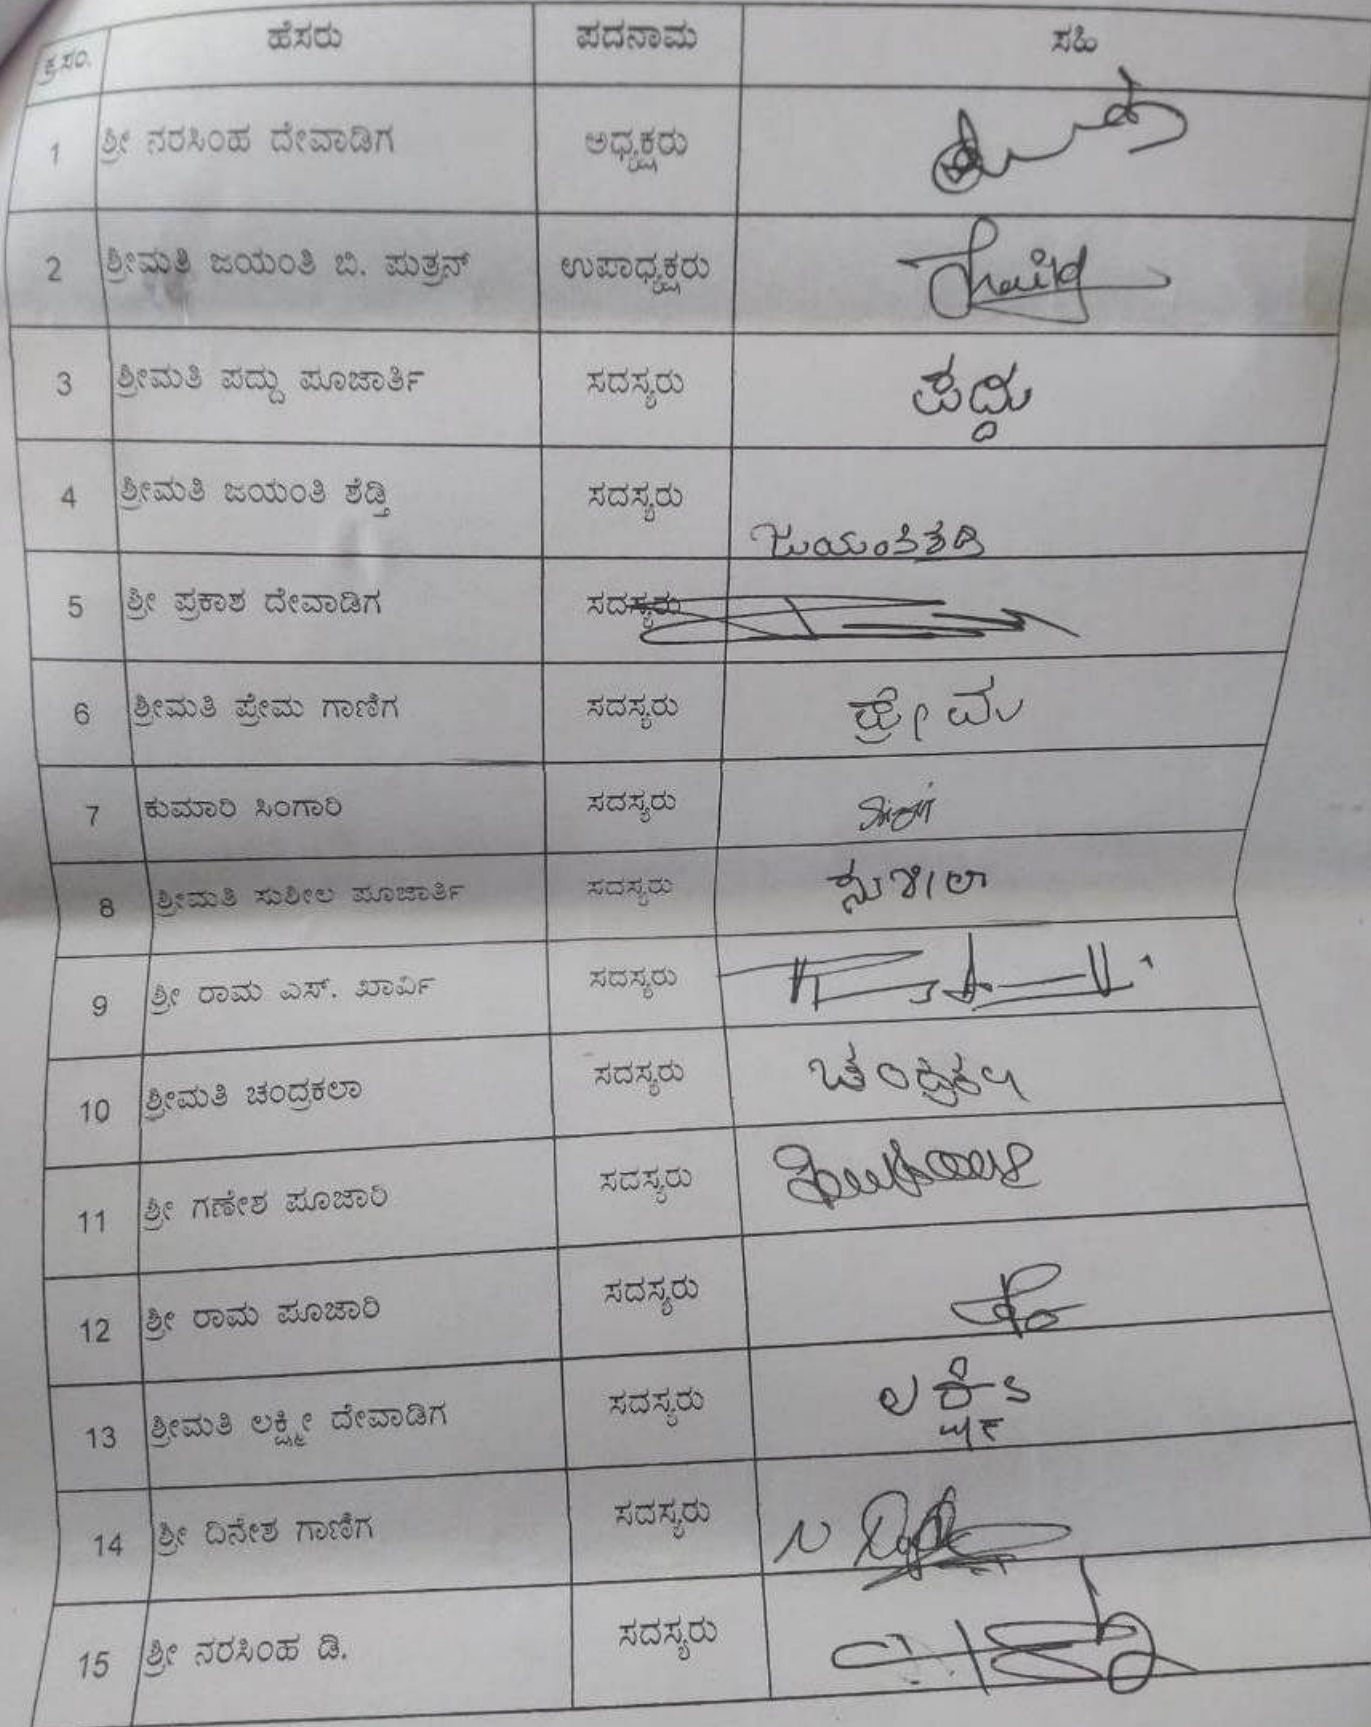 ಕ್ರ.ಸಂ. ಹೆಸರು ಪದನಾಮ ಸಹಿ
1 ಶ್ರೀ ನರಸಿಂಹ ದೇವಾಡಿಗ ಅಧ್ಯಕ್ಷರು
2 ಶ್ರೀಮತಿ ಜಯಂತಿ ಬಿ. ಪುತ್ರನ್ ಉಪಾಧ್ಯಕ್ಷರು
3 ಶ್ರೀಮತಿ ಪದ್ದು ಪೂಜಾರ್ತಿ ಸದಸ್ಯರು ಪದ್ದು
4 ಶ್ರೀಮತಿ ಜಯಂತಿ ಶೆಡ್ತಿ ಸದಸ್ಯರು
5 ಶ್ರೀ ಪ್ರಕಾಶ ದೇವಾಡಿಗ ಸದಸ್ಯರು
6 ಶ್ರೀಮತಿ ಪ್ರೇಮ ಗಾಣಿಗ ಸದಸ್ಯರು ಪ್ರೇಮ
7 ಕುಮಾರಿ ಸಿಂಗಾರಿ ಸದಸ್ಯರು
8 ಶ್ರೀಮತಿ ಸುಶೀಲ ಪೂಜಾರ್ತಿ ಸದಸ್ಯರು ಸುಶೀಲಾ
9 ಶ್ರೀ ರಾಮ ಎಸ್. ಖಾರ್ವಿ ಸದಸ್ಯರು
10 ಶ್ರೀಮತಿ ಚಂದ್ರಕಲಾ ಸದಸ್ಯರು ಚಂದ್ರಕಲಾ
11 ಶ್ರೀ ಗಣೇಶ ಪೂಜಾರಿ ಸದಸ್ಯರು
12 ಶ್ರೀ ರಾಮ ಪೂಜಾರಿ ಸದಸ್ಯರು
13 ಶ್ರೀಮತಿ ಲಕ್ಷ್ಮೀ ದೇವಾಡಿಗ ಸದಸ್ಯರು
14 ಶ್ರೀ ದಿನೇಶ ಗಾಣಿಗ ಸದಸ್ಯರು
15 ಶ್ರೀ ನರಸಿಂಹ ಡಿ. ಸದಸ್ಯರು